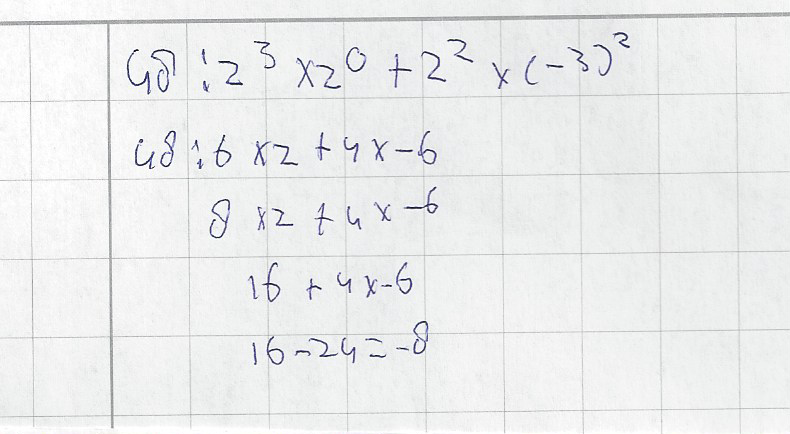 48 : 2³ x 2⁰ + 2² x (-3)²
48 : 6 x 2 + 4 x -6
8 x 2 + 4 x -6
16 + 4 x -6
16 - 24 = -8